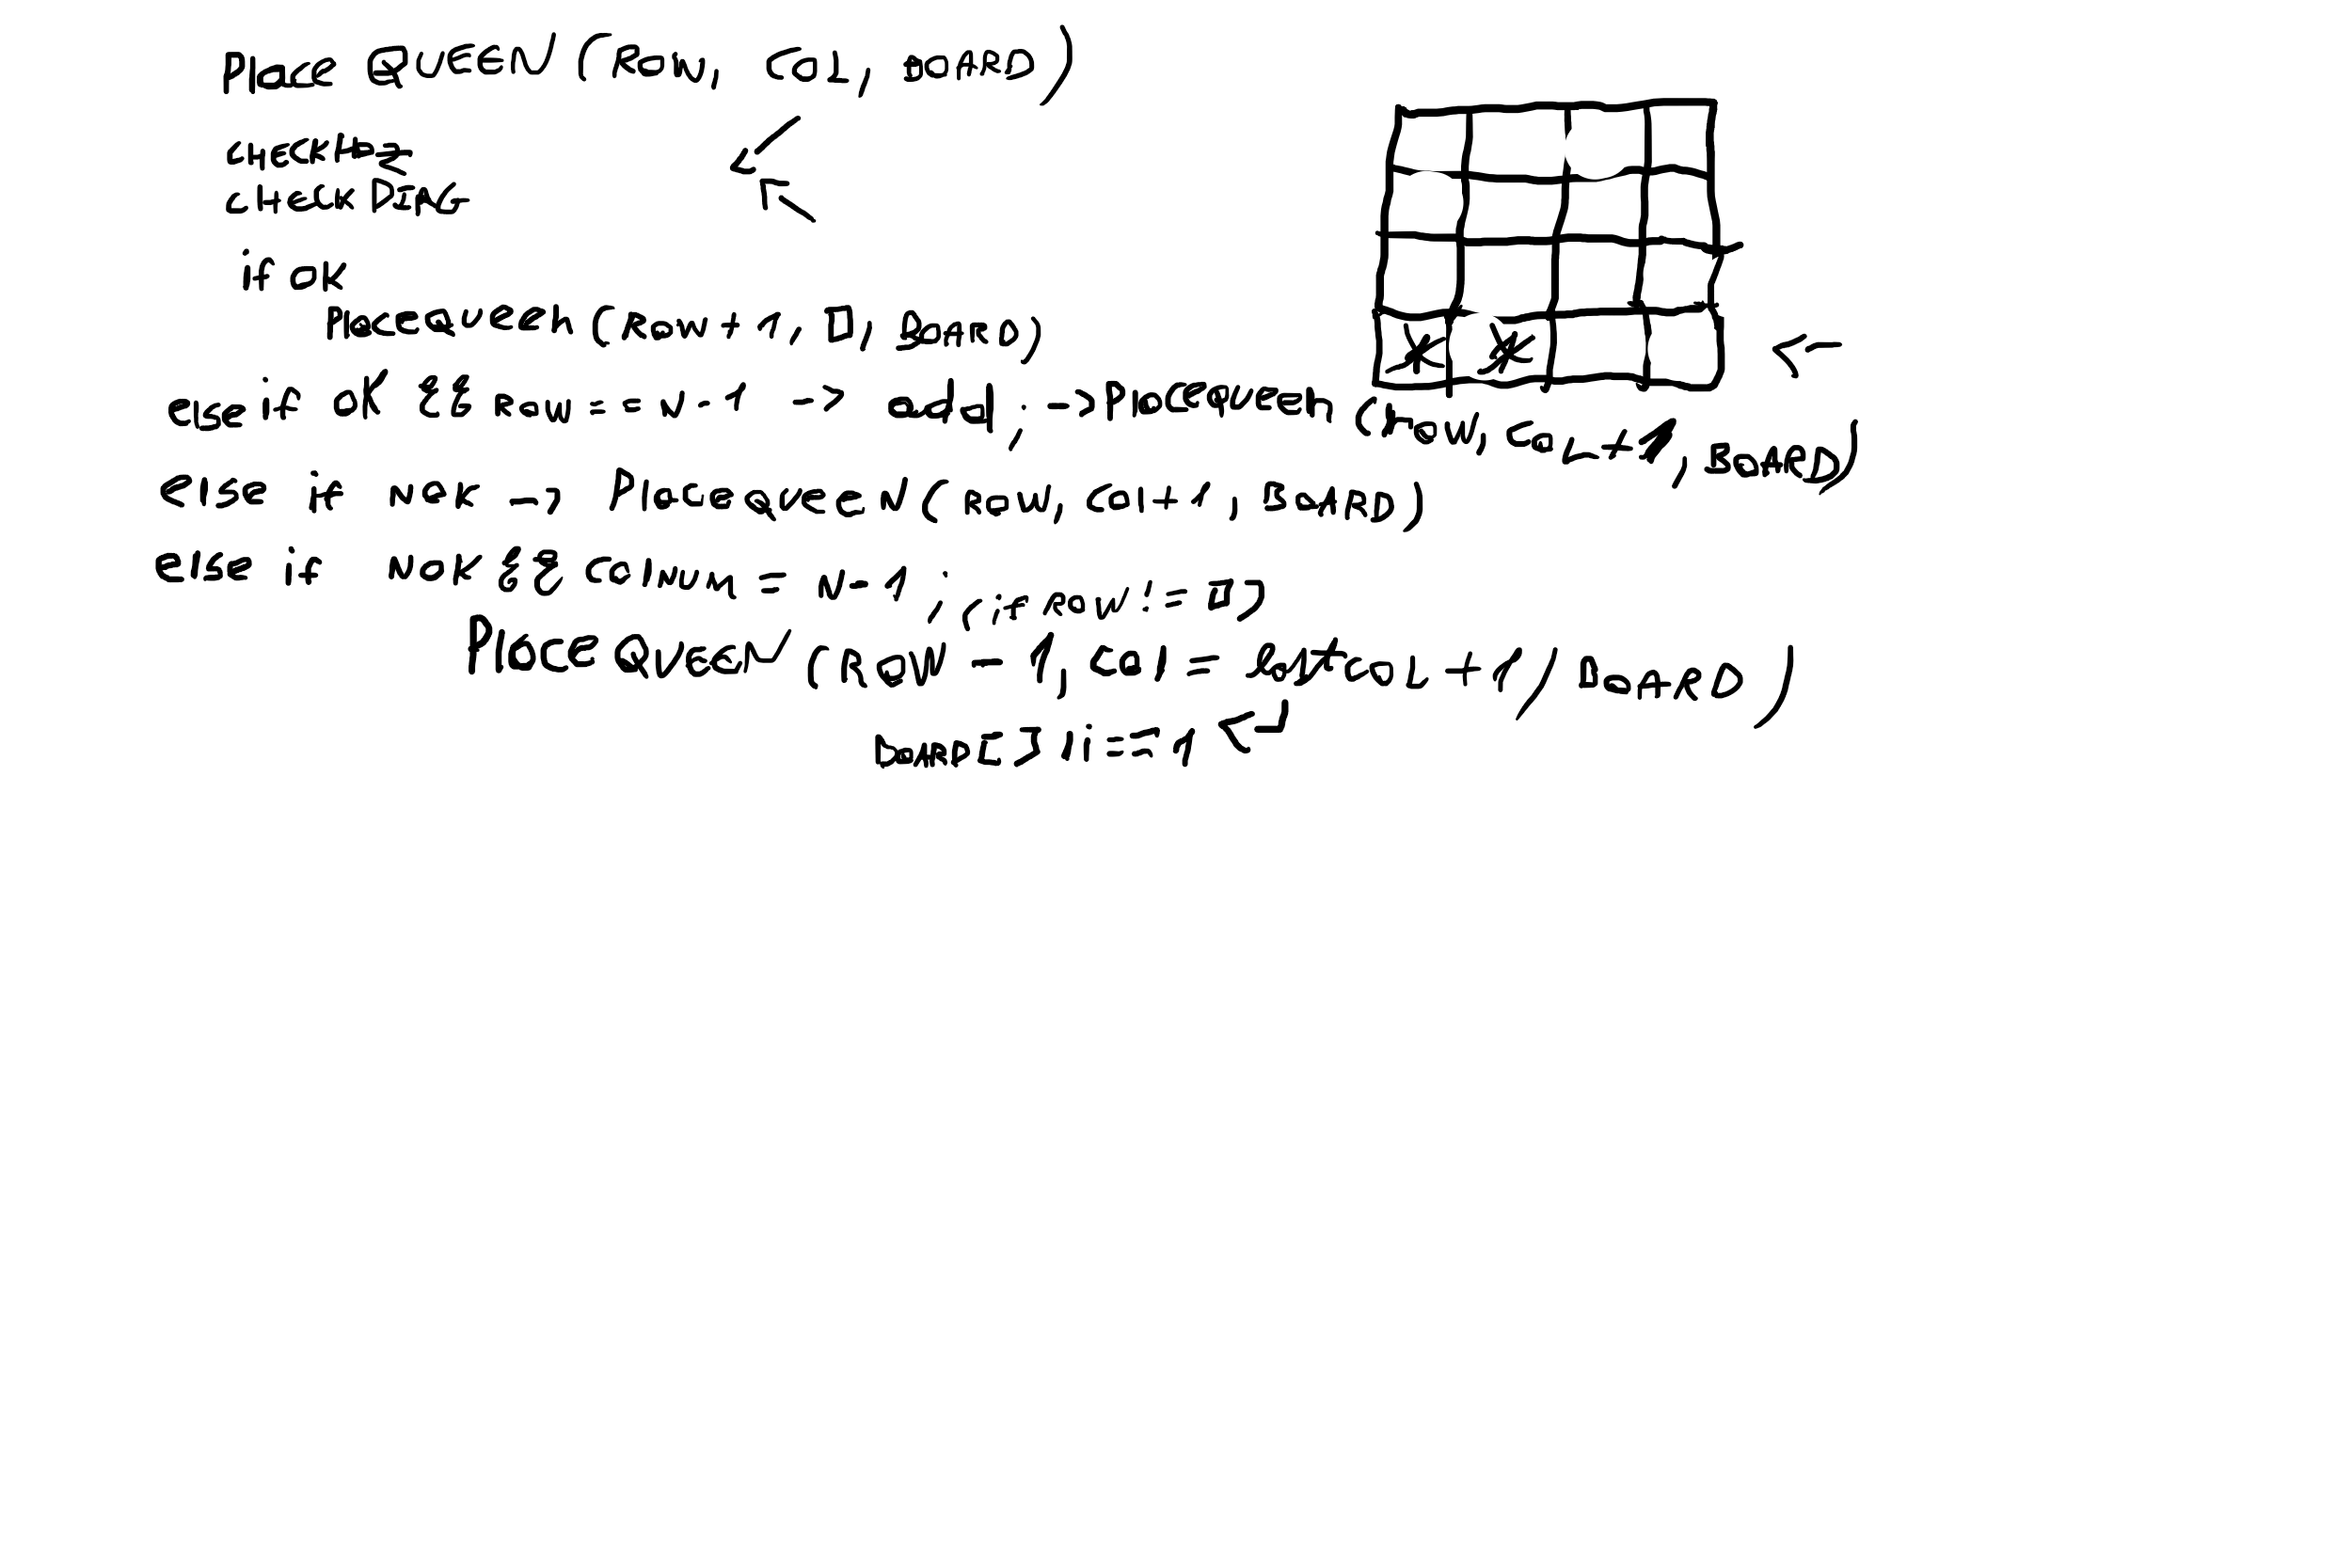 Place QUEEN (ROW, COL, BOARD)
CHECK
CHECK DIAG
if OK
PlaceQueen (ROW + 1, 0, BOARD)
else if OK && ROW == N-1 -> add ; -> PlaceQueen (ROW, COL + 1, BOARD)
else if NOK -> PlaceQueeN (ROW, COl+1, BOARD)
else if NOK && COlNUM = N-1 ; (if ROW != 0)
PlaceQUEEN (ROW - 1, COl = COL + 1, BOARD)
BOARD[ ] i == 1